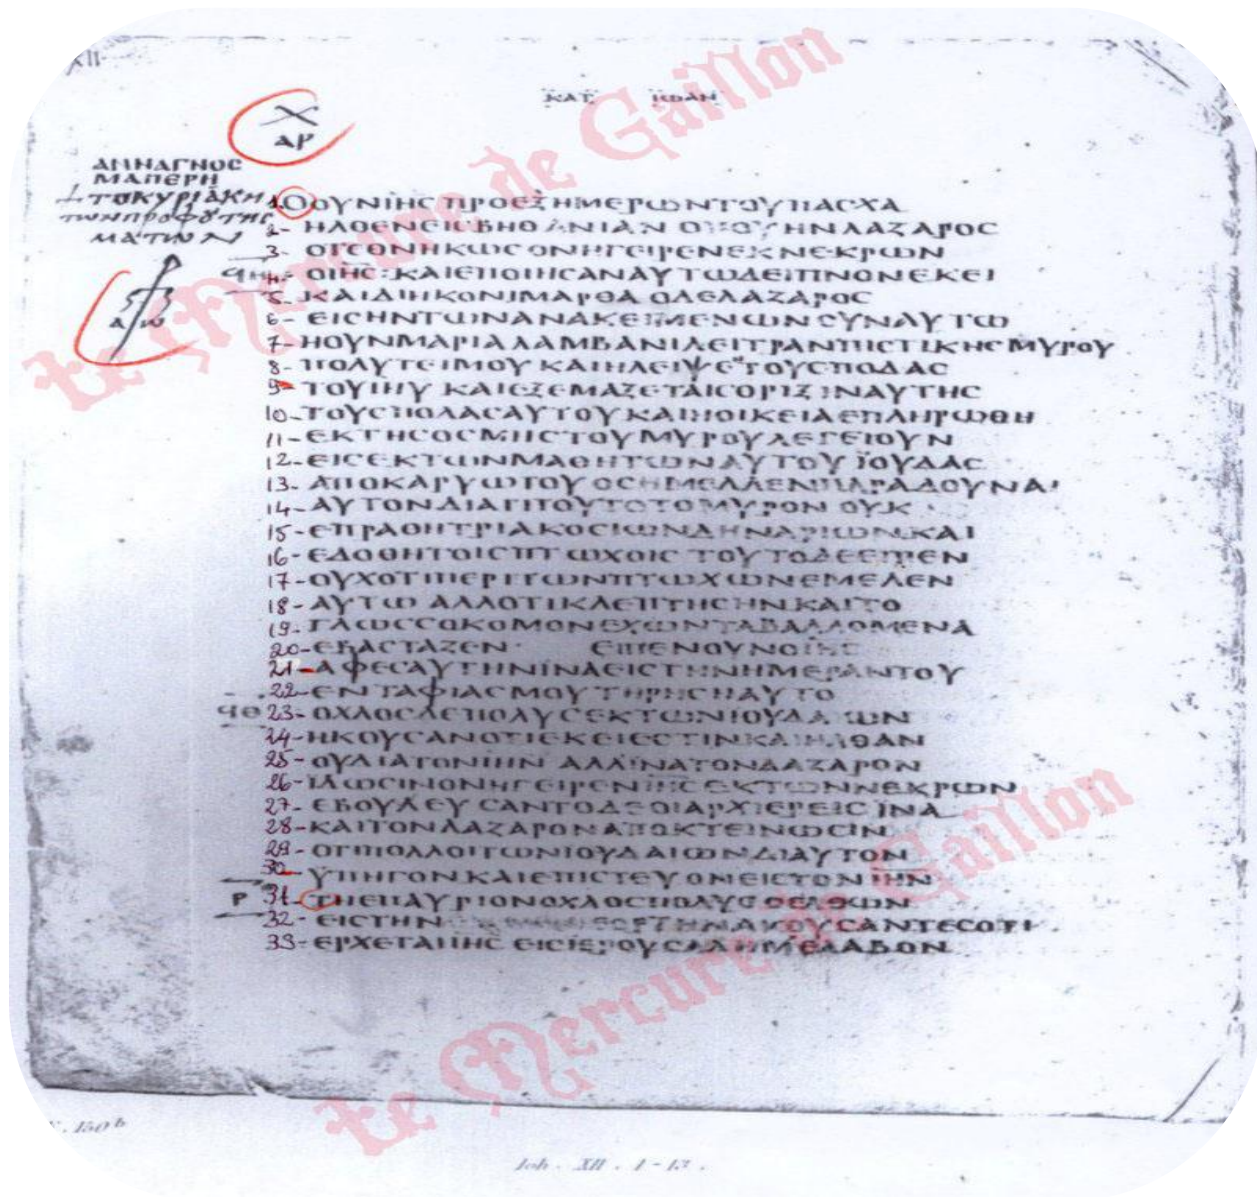 XII
ΚΑΤ ΙΩΑΝ
Χ
ΑΡ
ΑΝΝΑΓΝΟΣ
ΜΑΠΕΡΗ
ΤΟΚΥΡΙΑΚΗ
ΤΩΝΠΡΟΦΟΤΗΣ
ΜΑΤΩΝ
Α Ω
1 ΟΟΥΝΙΗϹ ΠΡΟΕΞΗΜΕΡΩΝΤΟΥΠΑϹΧΑ
2- ΗΛΘΕΝΕΙϹΒΗΘΑΝΙΑΝ ΟΠΟΥΗΝΛΑΖΑΡΟϹ
3- ΟΤΕΘΝΗΚΩϹ ΟΝΗΓΕΙΡΕΝΕΚΝΕΚΡΩΝ
4- ΟΙΗϹ: ΚΑΙΕΠΟΙΗϹΑΝΑΥΤΩΔΕΙΠΝΟΝΕΚΕΙ
5- ΚΑΙΔΙΗΚΟΝΙΜΑΡΘΑ ΟΔΕΛΑΖΑΡΟϹ
6- ΕΙϹΗΝΤΩΝΑΝΑΚΕΙΜΕΝΩΝϹΥΝΑΥΤΩ
7- ΗΟΥΝΜΑΡΙΑΛΑΜΒΑΝΙΛΕΙΤΡΑΝΠΙϹΤΙΚΗϹΜΥΡΟΥ
8- ΠΟΛΥΤΕΙΜΟΥ ΚΑΙΗΛΕΙΨΕΤΟΥϹΠΟΔΑϹ
9- ΤΟΥΙΗΥ ΚΑΙΕΞΕΜΑΖΕΤΑΙϹΘΡΙΞΙΝΑΥΤΗϹ
10- ΤΟΥϹΠΟΔΑϹΑΥΤΟΥΚΑΙΗΟΙΚΕΙΑΕΠΛΗΡΩΘΗ
11- ΕΚΤΗϹΟϹΜΗϹΤΟΥΜΥΡΟΥΛΕΓΕΙΟΥΝ
12- ΕΙϹΕΚΤΩΝΜΑΘΗΤΩΝΑΥΤΟΥ ΪΟΥΔΑϹ
13- ΑΠΟΚΑΡΥΩΤΟΥ ΟϹΗΜΕΛΛΕΝΠΑΡΑΔΟΥΝΑΙ
14- ΑΥΤΟΝΔΙΑΤΙΤΟΥΤΟΤΟΜΥΡΟΝ ΟΥΚ
15- ΕΠΡΑΘΗΤΡΙΑΚΟϹΙΩΝΔΗΝΑΡΙΩΝΚΑΙ
16- ΕΔΟΘΗΤΟΙϹΠΤΩΧΟΙϹ ΤΟΥΤΟΔΕΕΙΠΕΝ
17- ΟΥΧΟΤΙΠΕΡΙΤΩΝΠΤΩΧΩΝΕΜΕΛΕΝ
18- ΑΥΤΩ ΑΛΛΟΤΙΚΛΕΠΤΗϹΗΝΚΑΙΤΟ
19- ΓΛΩϹϹΟΚΟΜΟΝΕΧΩΝΤΑΒΑΛΛΟΜΕΝΑ
20- ΕΒΑϹΤΑΖΕΝ ΕΙΠΕΝΟΥΝΟΙΗϹ
21- ΑΦΕϹΑΥΤΗΝΙΝΑΕΙϹΤΗΝΗΜΕΡΑΝΤΟΥ
22- ΕΝΤΑΦΙΑϹΜΟΥΤΗΡΗϹΗΑΥΤΟ
ϤΘ 23- ΟΧΛΟϹΔΕΠΟΛΥϹΕΚΤΩΝΙΟΥΔΑΙΩΝ
24- ΗΚΟΥϹΑΝΟΤΙΕΚΕΙΕϹΤΙΝΚΑΙΗΛΘΑΝ
25- ΟΥΔΙΑΤΟΝΙΗΝ ΑΛΛΙΝΑΤΟΝΛΑΖΑΡΟΝ
26- ΙΔΩϹΙΝΟΝΗΓΕΙΡΕΝΙΗϹΕΚΤΩΝΝΕΚΡΩΝ
27- ΕΒΟΥΛΕΥϹΑΝΤΟΔΕΟΙΑΡΧΙΕΡΕΙϹ ΪΝΑ
28- ΚΑΙΤΟΝΛΑΖΑΡΟΝΑΠΟΚΤΕΙΝΩϹΙΝ
29- ΟΤΙΠΟΛΛΟΙΤΩΝΙΟΥΔΑΙΩΝΔΙΑΥΤΟΝ
30- ΥΠΗΓΟΝΚΑΙΕΠΙϹΤΕΥΟΝΕΙϹΤΟΝΙΗΝ
Ρ 31 ΤΗΕΠΑΥΡΙΟΝΟΧΛΟϹΠΟΛΥϹΟΕΛΘΩΝ
32- ΕΙϹΤΗΝ ΕΟΡΤΗΝΑΚΟΥϹΑΝΤΕϹΟΤΙ
33- ΕΡΧΕΤΑΙΙΗϹ ΕΙϹΙΕΡΟΥϹΑΛΗΜΕΛΑΒΟΝ
150 b
Joh. XII. 1-13.
Le Mercure de Gaillon
Le Mercure de Gaillon